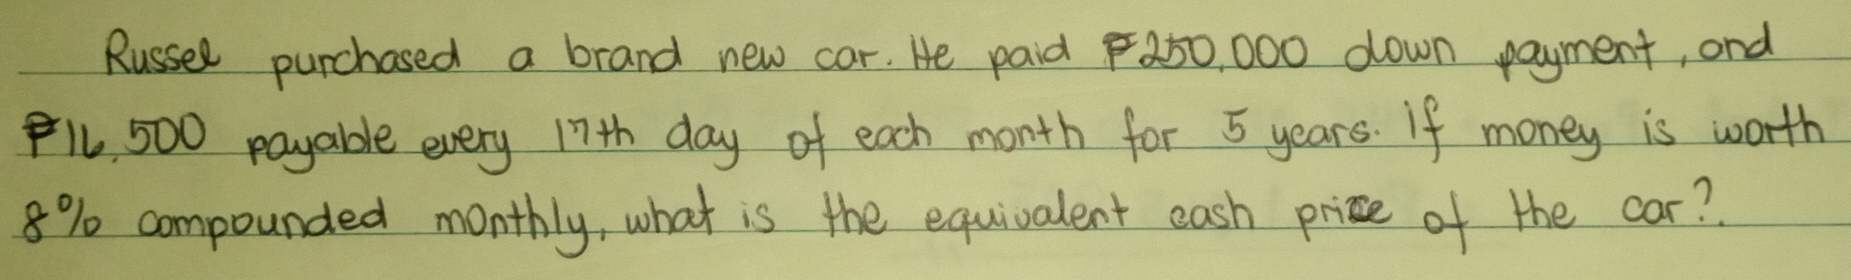 Russel purchased a brand new car. He paid ₱250,000 down payment, and
₱16,500 payable every 17th day of each month for 5 years. If money is worth
8% compounded monthly, what is the equivalent cash price of the car?